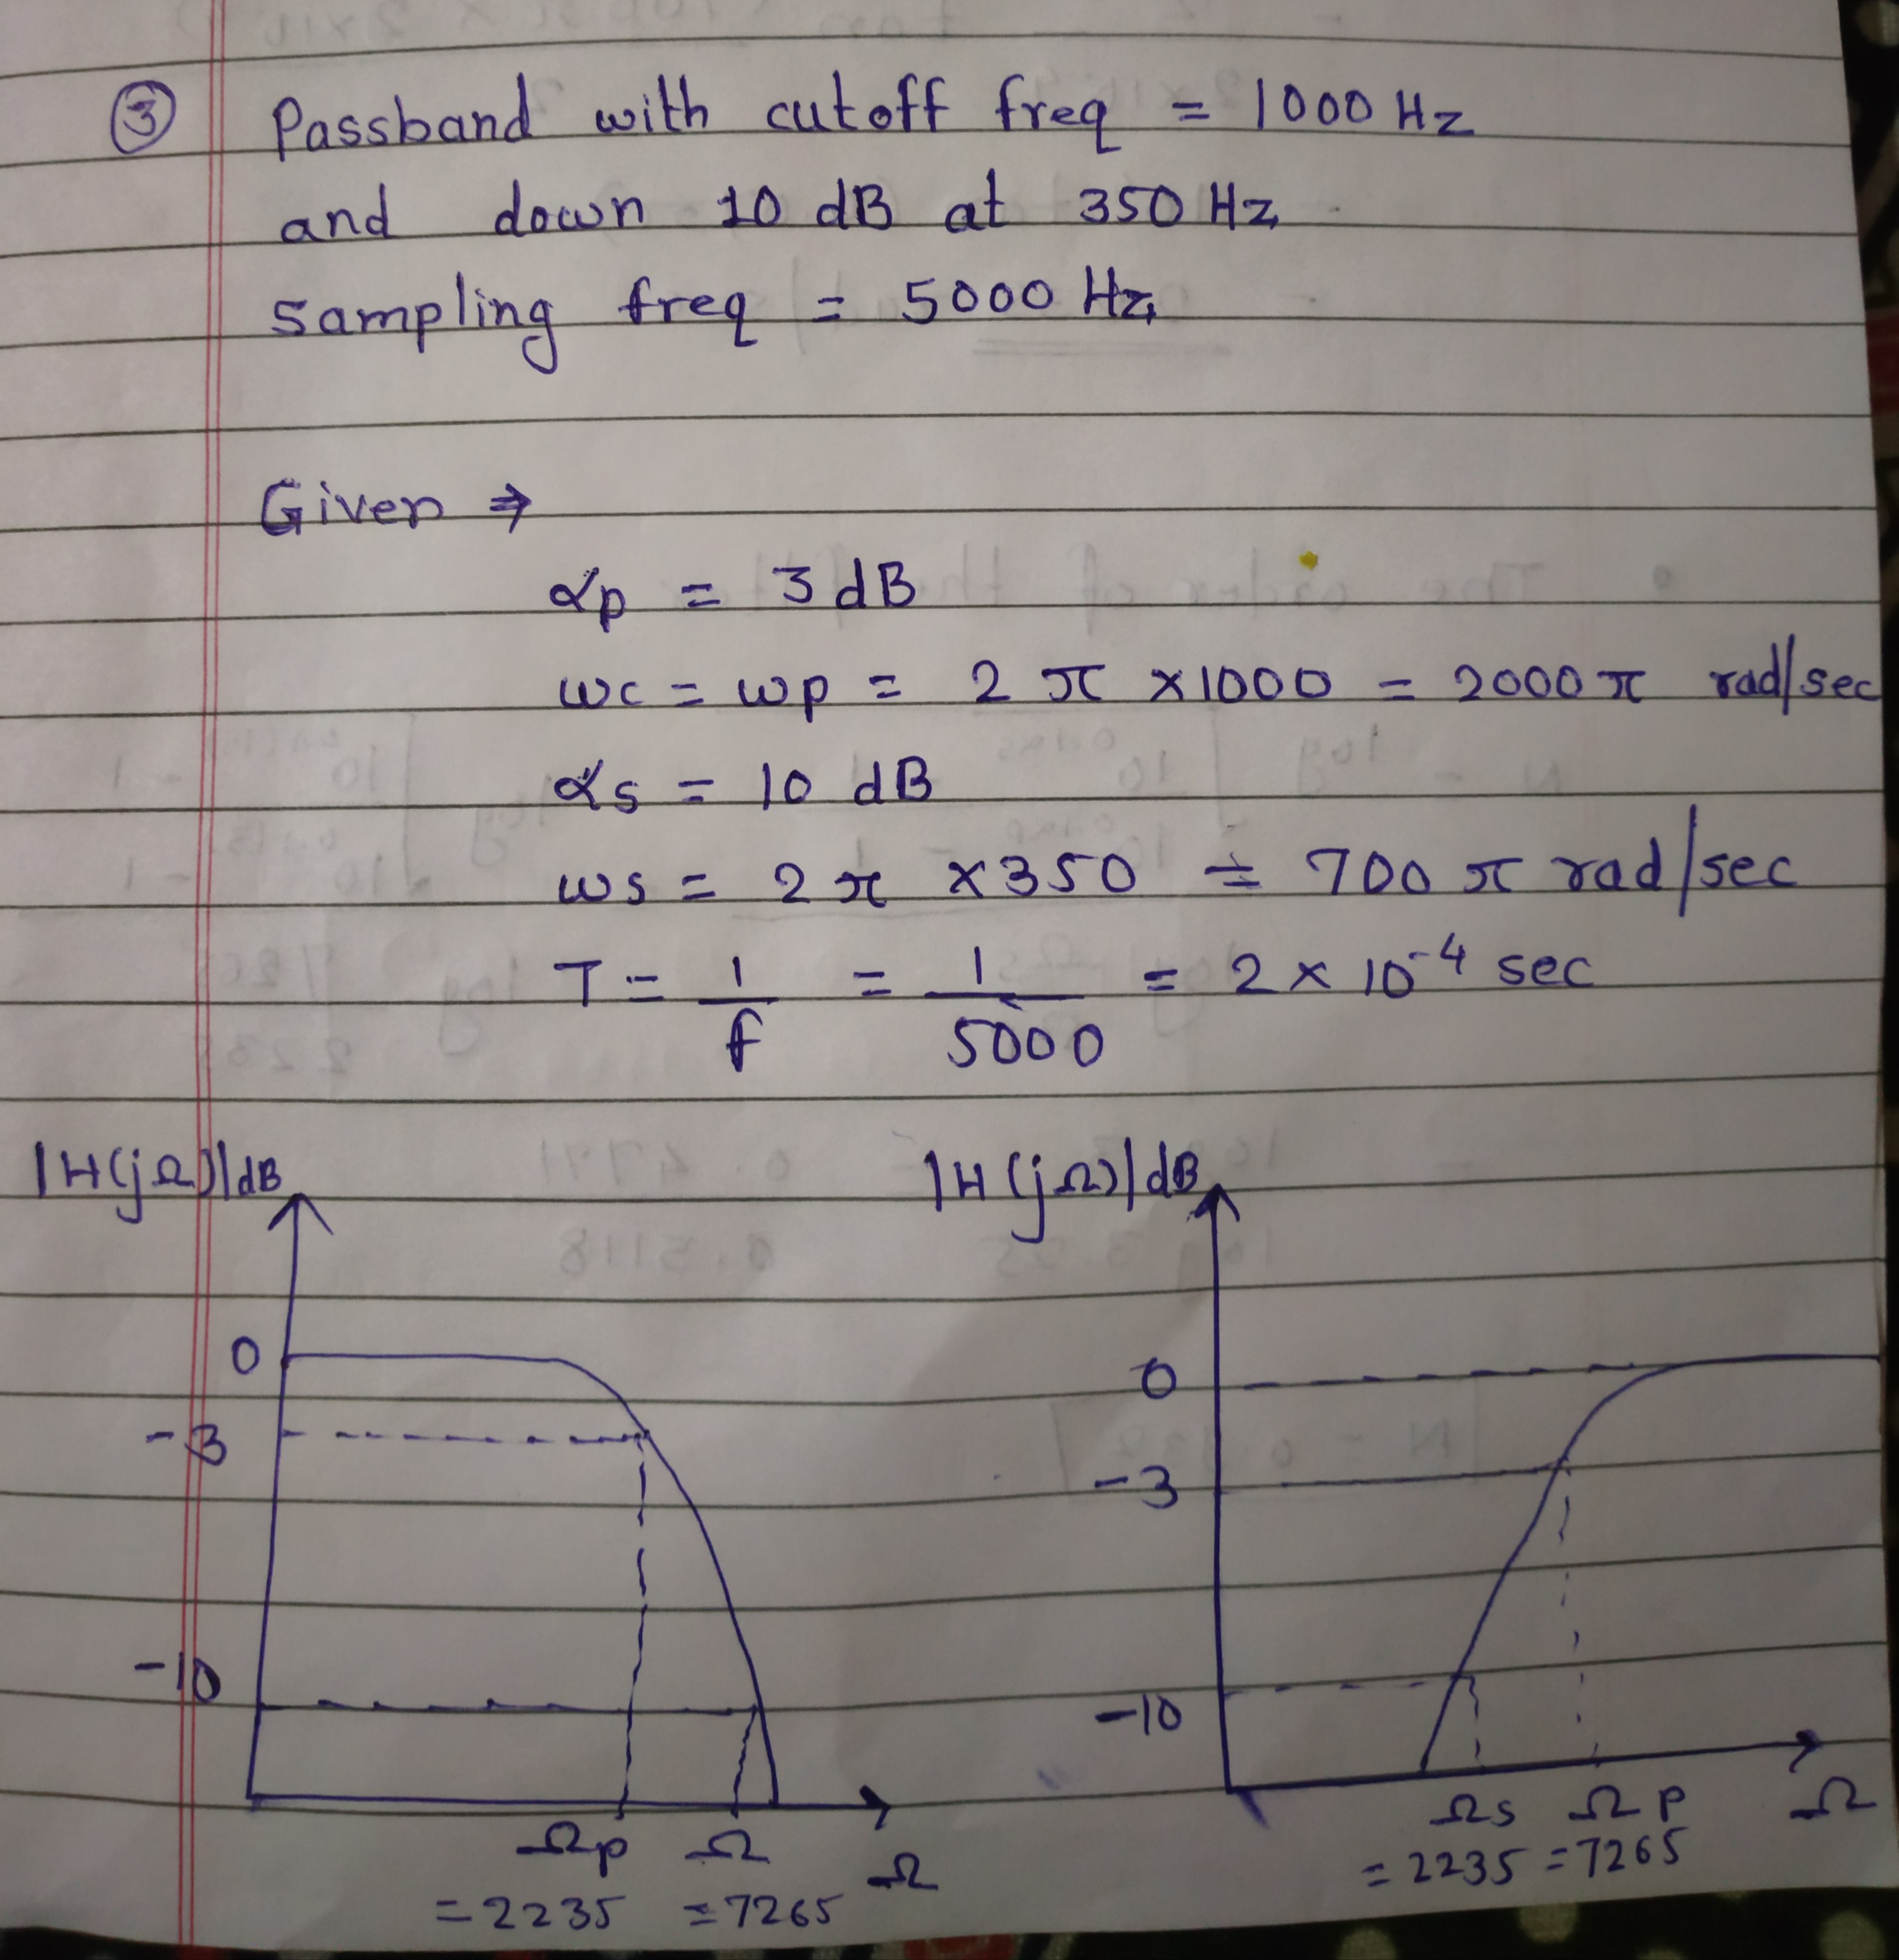 ③ Passband with cutoff freq = 1000 Hz
and down 10 dB at 350 Hz
sampling freq = 5000 Hz
Given ⇒
αp = 3 dB
wc = wp = 2 π × 1000 = 2000 π rad/sec
αs = 10 dB
ws = 2 π × 350 = 700 π rad/sec
T = 1/f = 1/5000 = 2 × 10⁻⁴ sec
|H(jΩ)|dB |H(jΩ)|dB
0 0
-3 -3
-10 -10
Ωp Ω Ω Ωs Ωp Ω
= 2235 = 7265 = 2235 = 7265